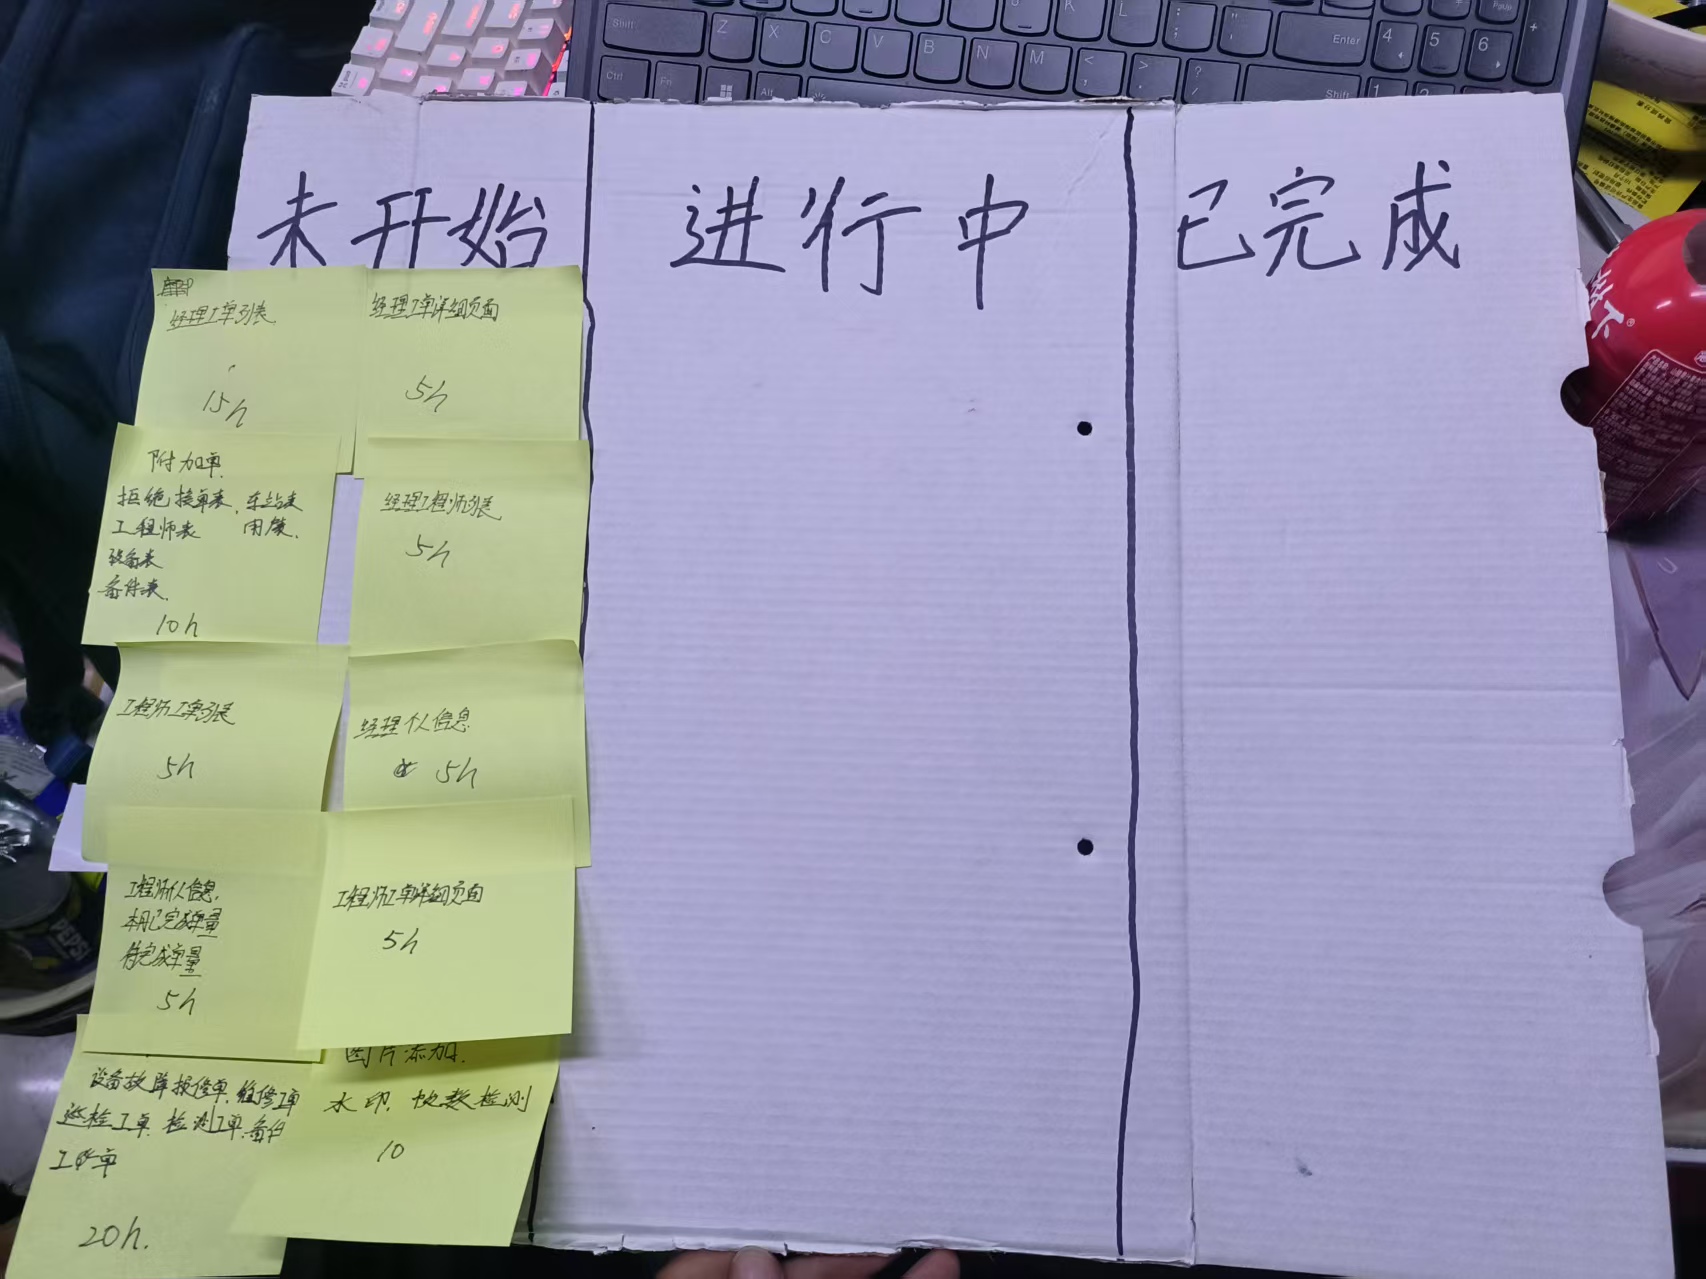 未开始
进行中
已完成
经理工单列表
15h
经理工单详细页面
5h
附加单
拒绝接单表，车站表
工程师表 用户表.
设备表
备件表.
10h
经理工程师列表
5h
工程师工单列表
5h
经理个人信息
5h
工程师个人信息.
本月已完成单量
待完成单量
5h
工程师工单详细页面
5h
设备故障报修单.维修工单
巡检工单.检测工单.备件
20h.
图片添加.
水印.帧数检测
10
Shift Z X C V B N M < > ? Enter 4 5 6
Ctrl Fn Alt Shift
PEPSI